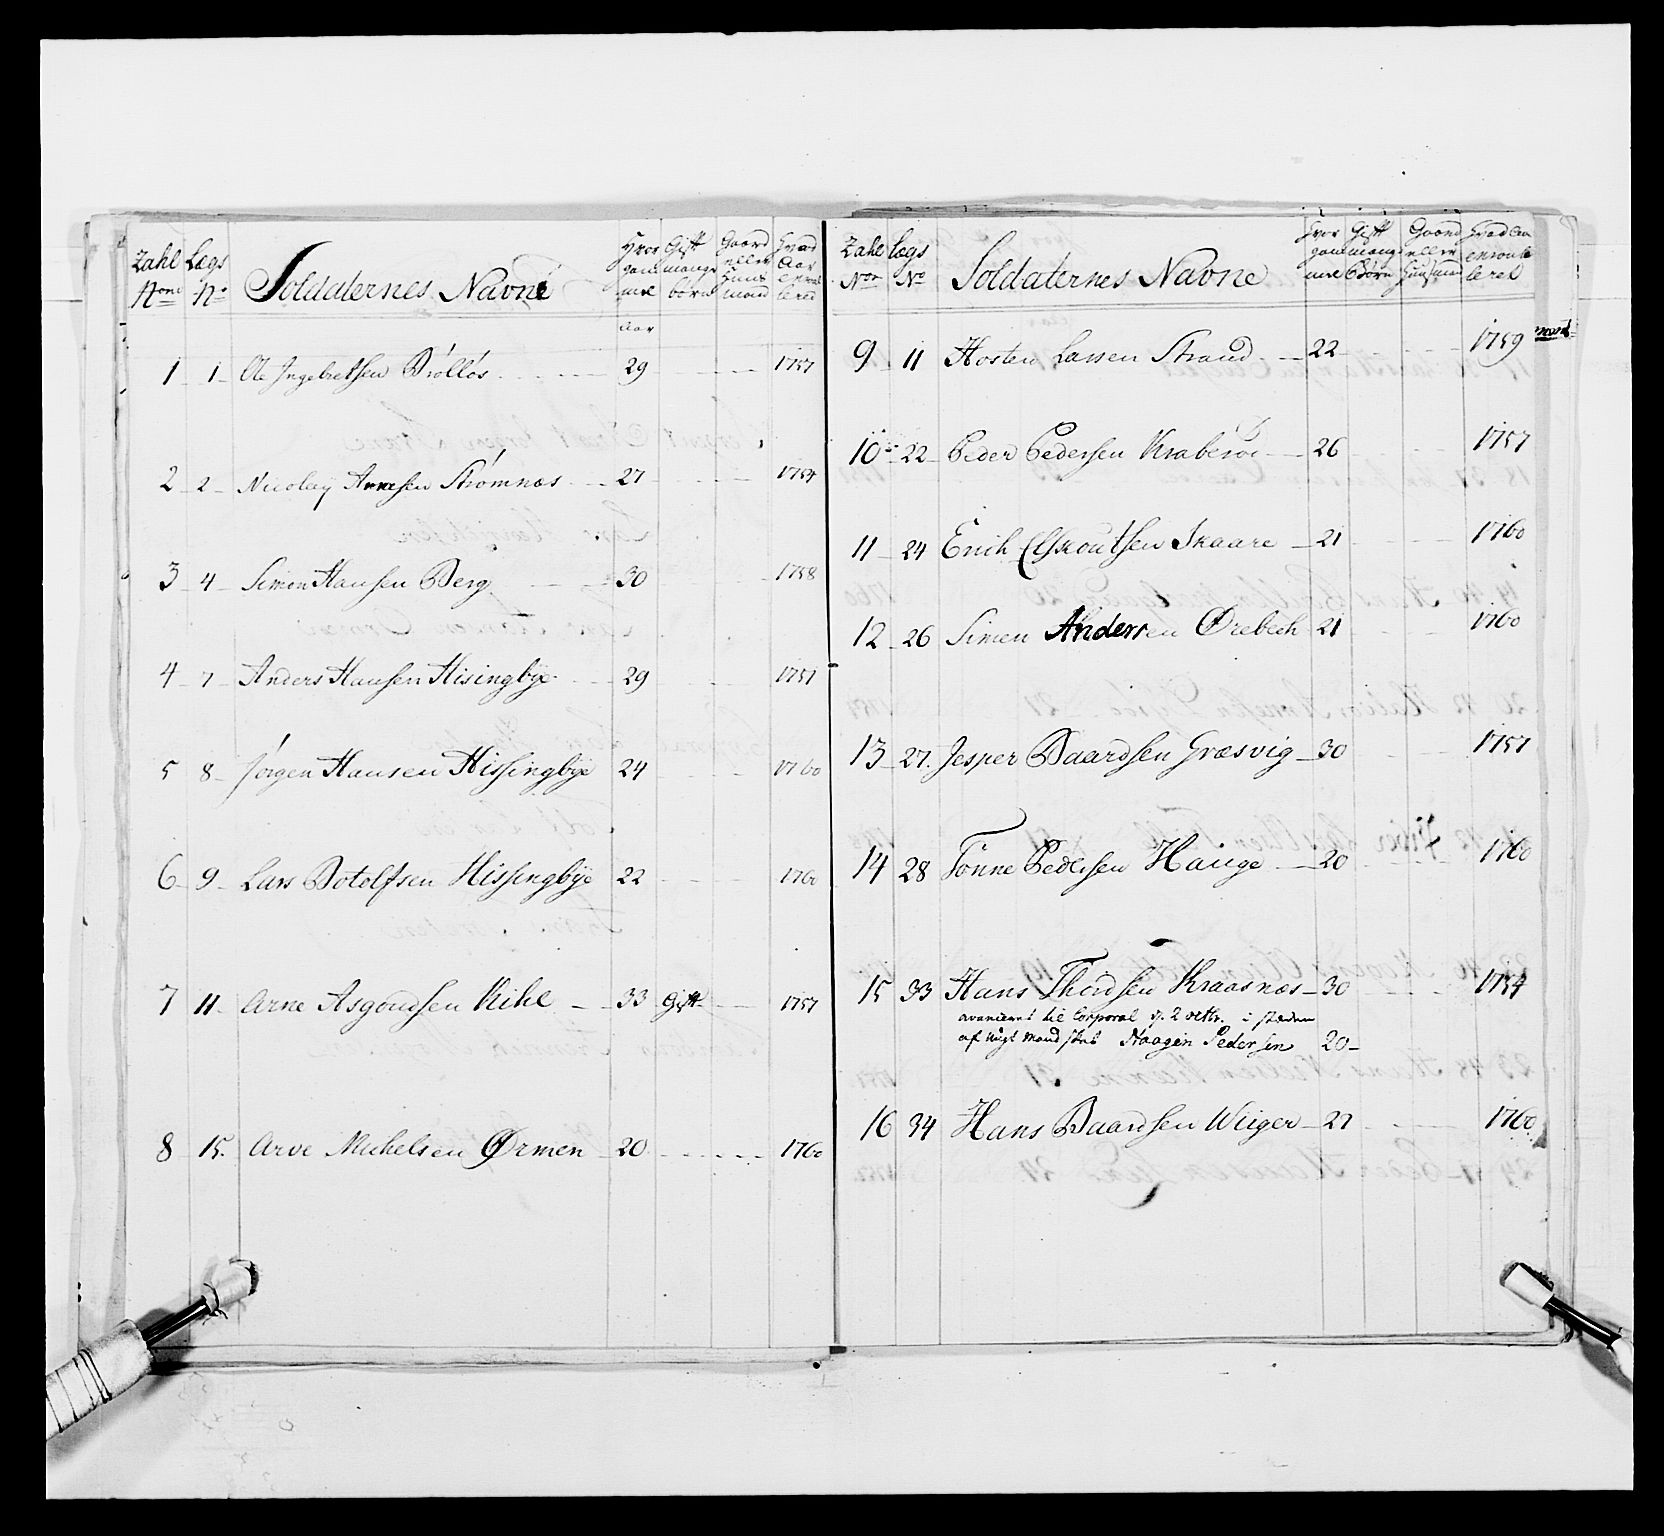 Zahl Lægs Soldaternes Navne Hvor Gift Gaard Hvad
gam mange eller Aar
mel børn Huus mand
No: Aar
1 1 Ole Ingebretsen Bröllös 29 1757
2 2 Nicolay Arnesen Strømnæs 27 1754
3 4 Simon Hansen Berg 30 1758
4 7 Anders Hansen Hisingbye 29 1757
5 8 Jørgen Hansen Hissingbye 24 1760
6 9 Lars Botolfsen Hissingbye 22 1760
7 11 Arne Asgoudsen Kihl 33 Gift 1757
8 15. Arve Michelsen Ørmen 20 1760
Zahl Lægs Soldaternes Navne Hvor Gift Gaard Hvad
No Børn
9 11 Hosten Larsen Strand 22 1759
10 22 Peder Pedersen Kraberöe 26 1757
11 24 Erich Elskoutsen Skaare 21 1760
12 26 Simen Andersen Ørebech 21 1760
13 27. Jesper Baardsen Græsvig 30 1757
14 28 Tönne Pedersen Hauge 20 1760
15 33 Hans Thordsen Kraasnæs 30 1754
avanceret til Corporal i stæden
af Haagen Pedersen 20
16 34 Hans Baardsen Wiiger 27 1760